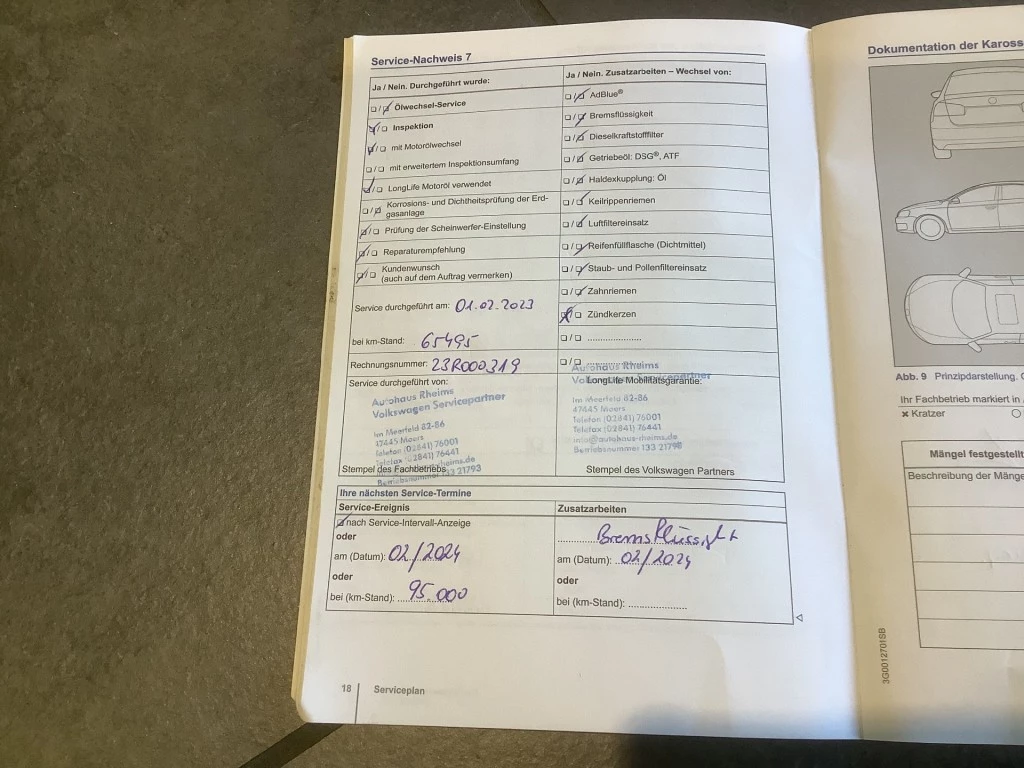 Service-Nachweis 7
Ja / Nein. Durchgeführt wurde:
❑ / ❑ Ölwechsel-Service
❑ / ❑ Inspektion
❑ / ❑ mit Motorölwechsel
❑ / ❑ mit erweitertem Inspektionsumfang
❑ / ❑ LongLife Motoröl verwendet
❑ / ❑ Korrosions- und Dichtheitsprüfung der Erd-
gasanlage
❑ / ❑ Prüfung der Scheinwerfer-Einstellung
❑ / ❑ Reparaturempfehlung
❑ / ❑ Kundenwunsch
(auch auf dem Auftrag vermerken)
Service durchgeführt am: 01.02.2023
bei km-Stand: 65495
Rechnungsnummer: 23R000319
Service durchgeführt von:
Autohaus Rheims
Volkswagen Servicepartner
Im Meerfeld 82-86
47445 Moers
Telefon (02841) 76001
Telefax (02841) 76441
Stempel des Fachbetriebs
Betriebsnummer 133 21793
Ja / Nein. Zusatzarbeiten – Wechsel von:
❑ / ❑ AdBlue®
❑ / ❑ Bremsflüssigkeit
❑ / ❑ Dieselkraftstofffilter
❑ / ❑ Getriebeöl: DSG®, ATF
❑ / ❑ Haldexkupplung: Öl
❑ / ❑ Keilrippenriemen
❑ / ❑ Luftfiltereinsatz
❑ / ❑ Reifenfüllflasche (Dichtmittel)
❑ / ❑ Staub- und Pollenfiltereinsatz
❑ / ❑ Zahnriemen
❑ / ❑ Zündkerzen
❑ / ❑ .....................
❑ / ❑ .....................
Autohaus Rheims
Volkswagen Servicepartner
LongLife Mobilitätsgarantie:
Im Meerfeld 82-86
47445 Moers
Telefon (02841) 76001
Telefax (02841) 76441
info@autohaus-rheims.de
Betriebsnummer 133 21793
Stempel des Volkswagen Partners
Ihre nächsten Service-Termine
Service-Ereignis
❑ nach Service-Intervall-Anzeige
oder
am (Datum): 02/2024
oder
bei (km-Stand): 95.000
Zusatzarbeiten
Bremsflüssigk
am (Datum): 02/2024
oder
bei (km-Stand): ..................
18
Serviceplan
Dokumentation der Kaross
Abb. 9 Prinzipdarstellung.
Ihr Fachbetrieb markiert in
✖ Kratzer
Mängel festgestellt
Beschreibung der Mänge
3G0012701SB